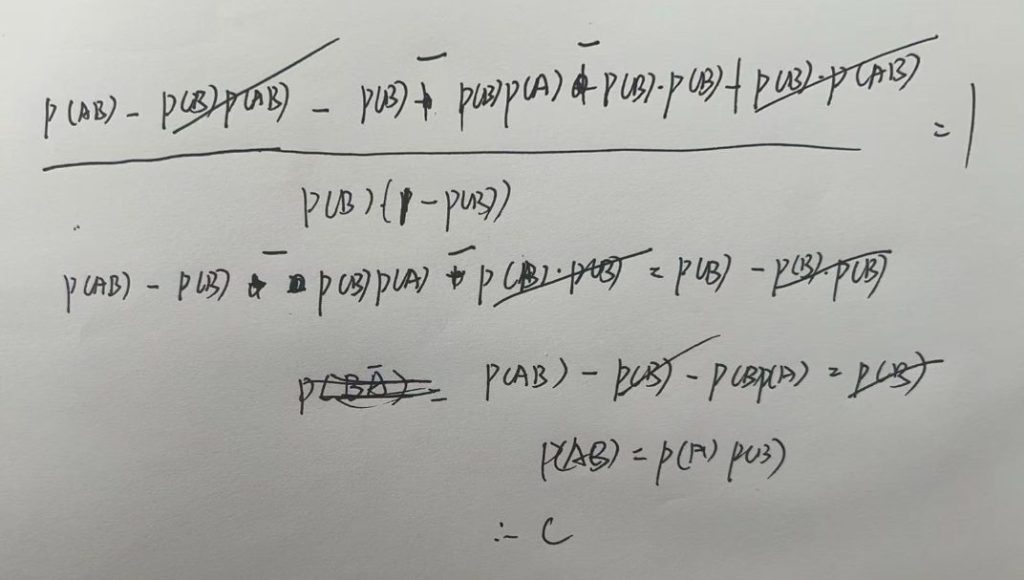 p(AB) - p(B)p(AB) - p(B) - p(B)p(A) - p(B)·p(B) + p(B)·p(AB) = 1
p(B)(1 - p(B))
p(AB) - p(B) - p(B)p(A) - p(B)·p(B) = p(B) - p(B)·p(B)
p(BĀ) = p(AB) - p(B) - p(B)p(A) = p(B)
p(AB) = p(A) p(B)
∴ C